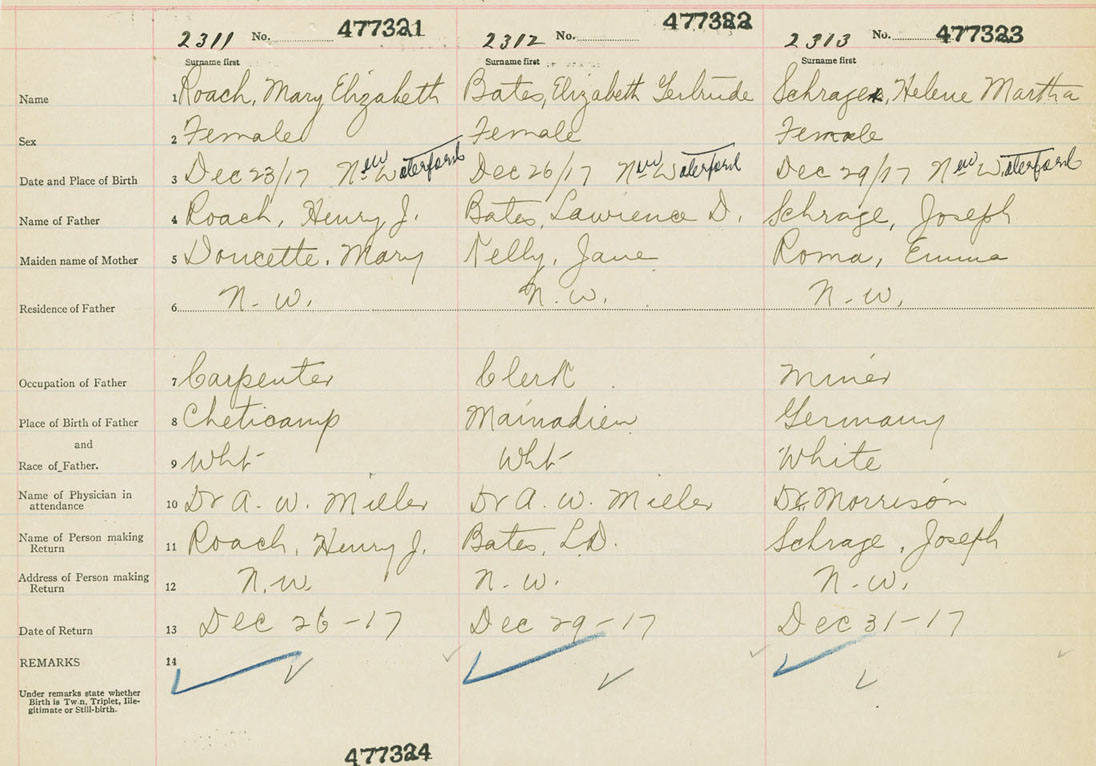 2311 No. 477321 2312 No. 477322 2313 No. 477323
Surname first Surname first Surname first
Name 1 Roach, Mary Elizabeth Bates, Elizabeth Gertrude Schrage, Helene Martha
Sex 2 Female Female Female
Date and Place of Birth 3 Dec 23/17 New Waterford Dec 26/17 New Waterford Dec 29/17 New Waterford
Name of Father 4 Roach, Henry J. Bates, Lawrence D. Schrage, Joseph
Maiden name of Mother 5 Doucette, Mary Kelly, Jane Roma, Emma
Residence of Father 6 N. W. N. W. N. W.
Occupation of Father 7 Carpenter Clerk Miner
Place of Birth of Father 8 Cheticamp Mainadieu Germany
and
Race of Father. 9 Wht Wht White
Name of Physician in attendance 10 Dr A. W. Miller Dr A. W. Miller Dr. Morrison
Name of Person making Return 11 Roach, Henry J. Bates, L.D. Schrage, Joseph
Address of Person making Return 12 N. W. N. W. N. W.
Date of Return 13 Dec 26-17 Dec 29-17 Dec 31-17
REMARKS 14
Under remarks state whether
Birth is Twin, Triplet, Ille-
gitimate or Still-birth.
477324